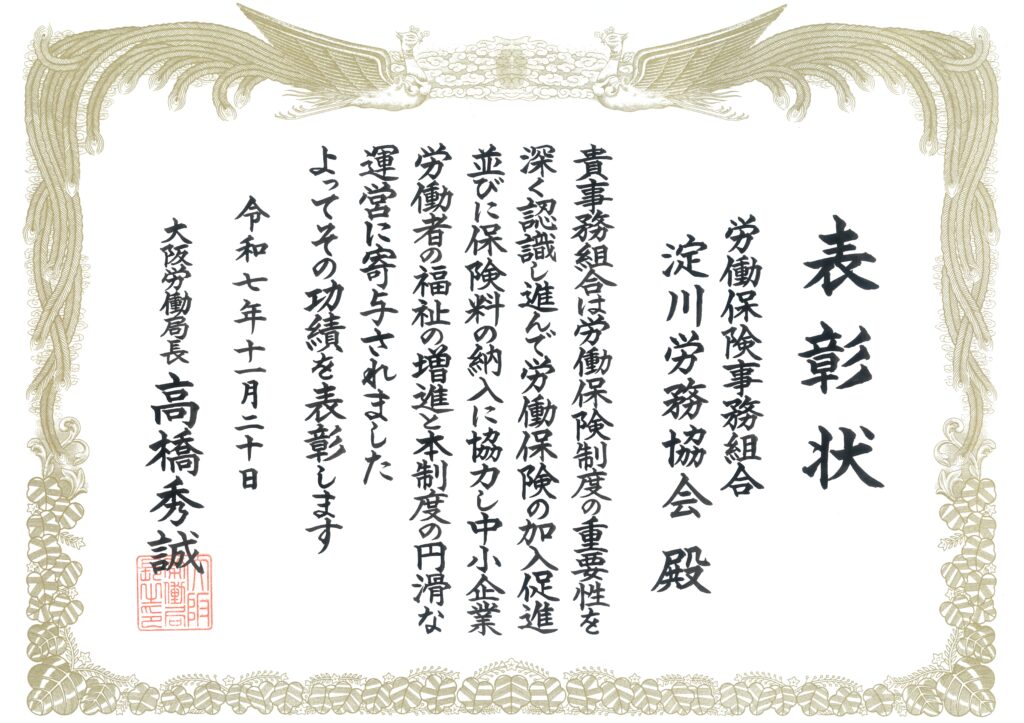 表彰状
労働保険事務組合
淀川労務協会 殿
貴事務組合は労働保険制度の重要性を
深く認識し進んで労働保険の加入促進
並びに保険料の納入に協力し中小企業
労働者の福祉の増進と本制度の円滑な
運営に寄与されました
よってその功績を表彰します
令和七年十一月二十日
大阪労働局長 高橋秀誠
大阪
労働局
長之印